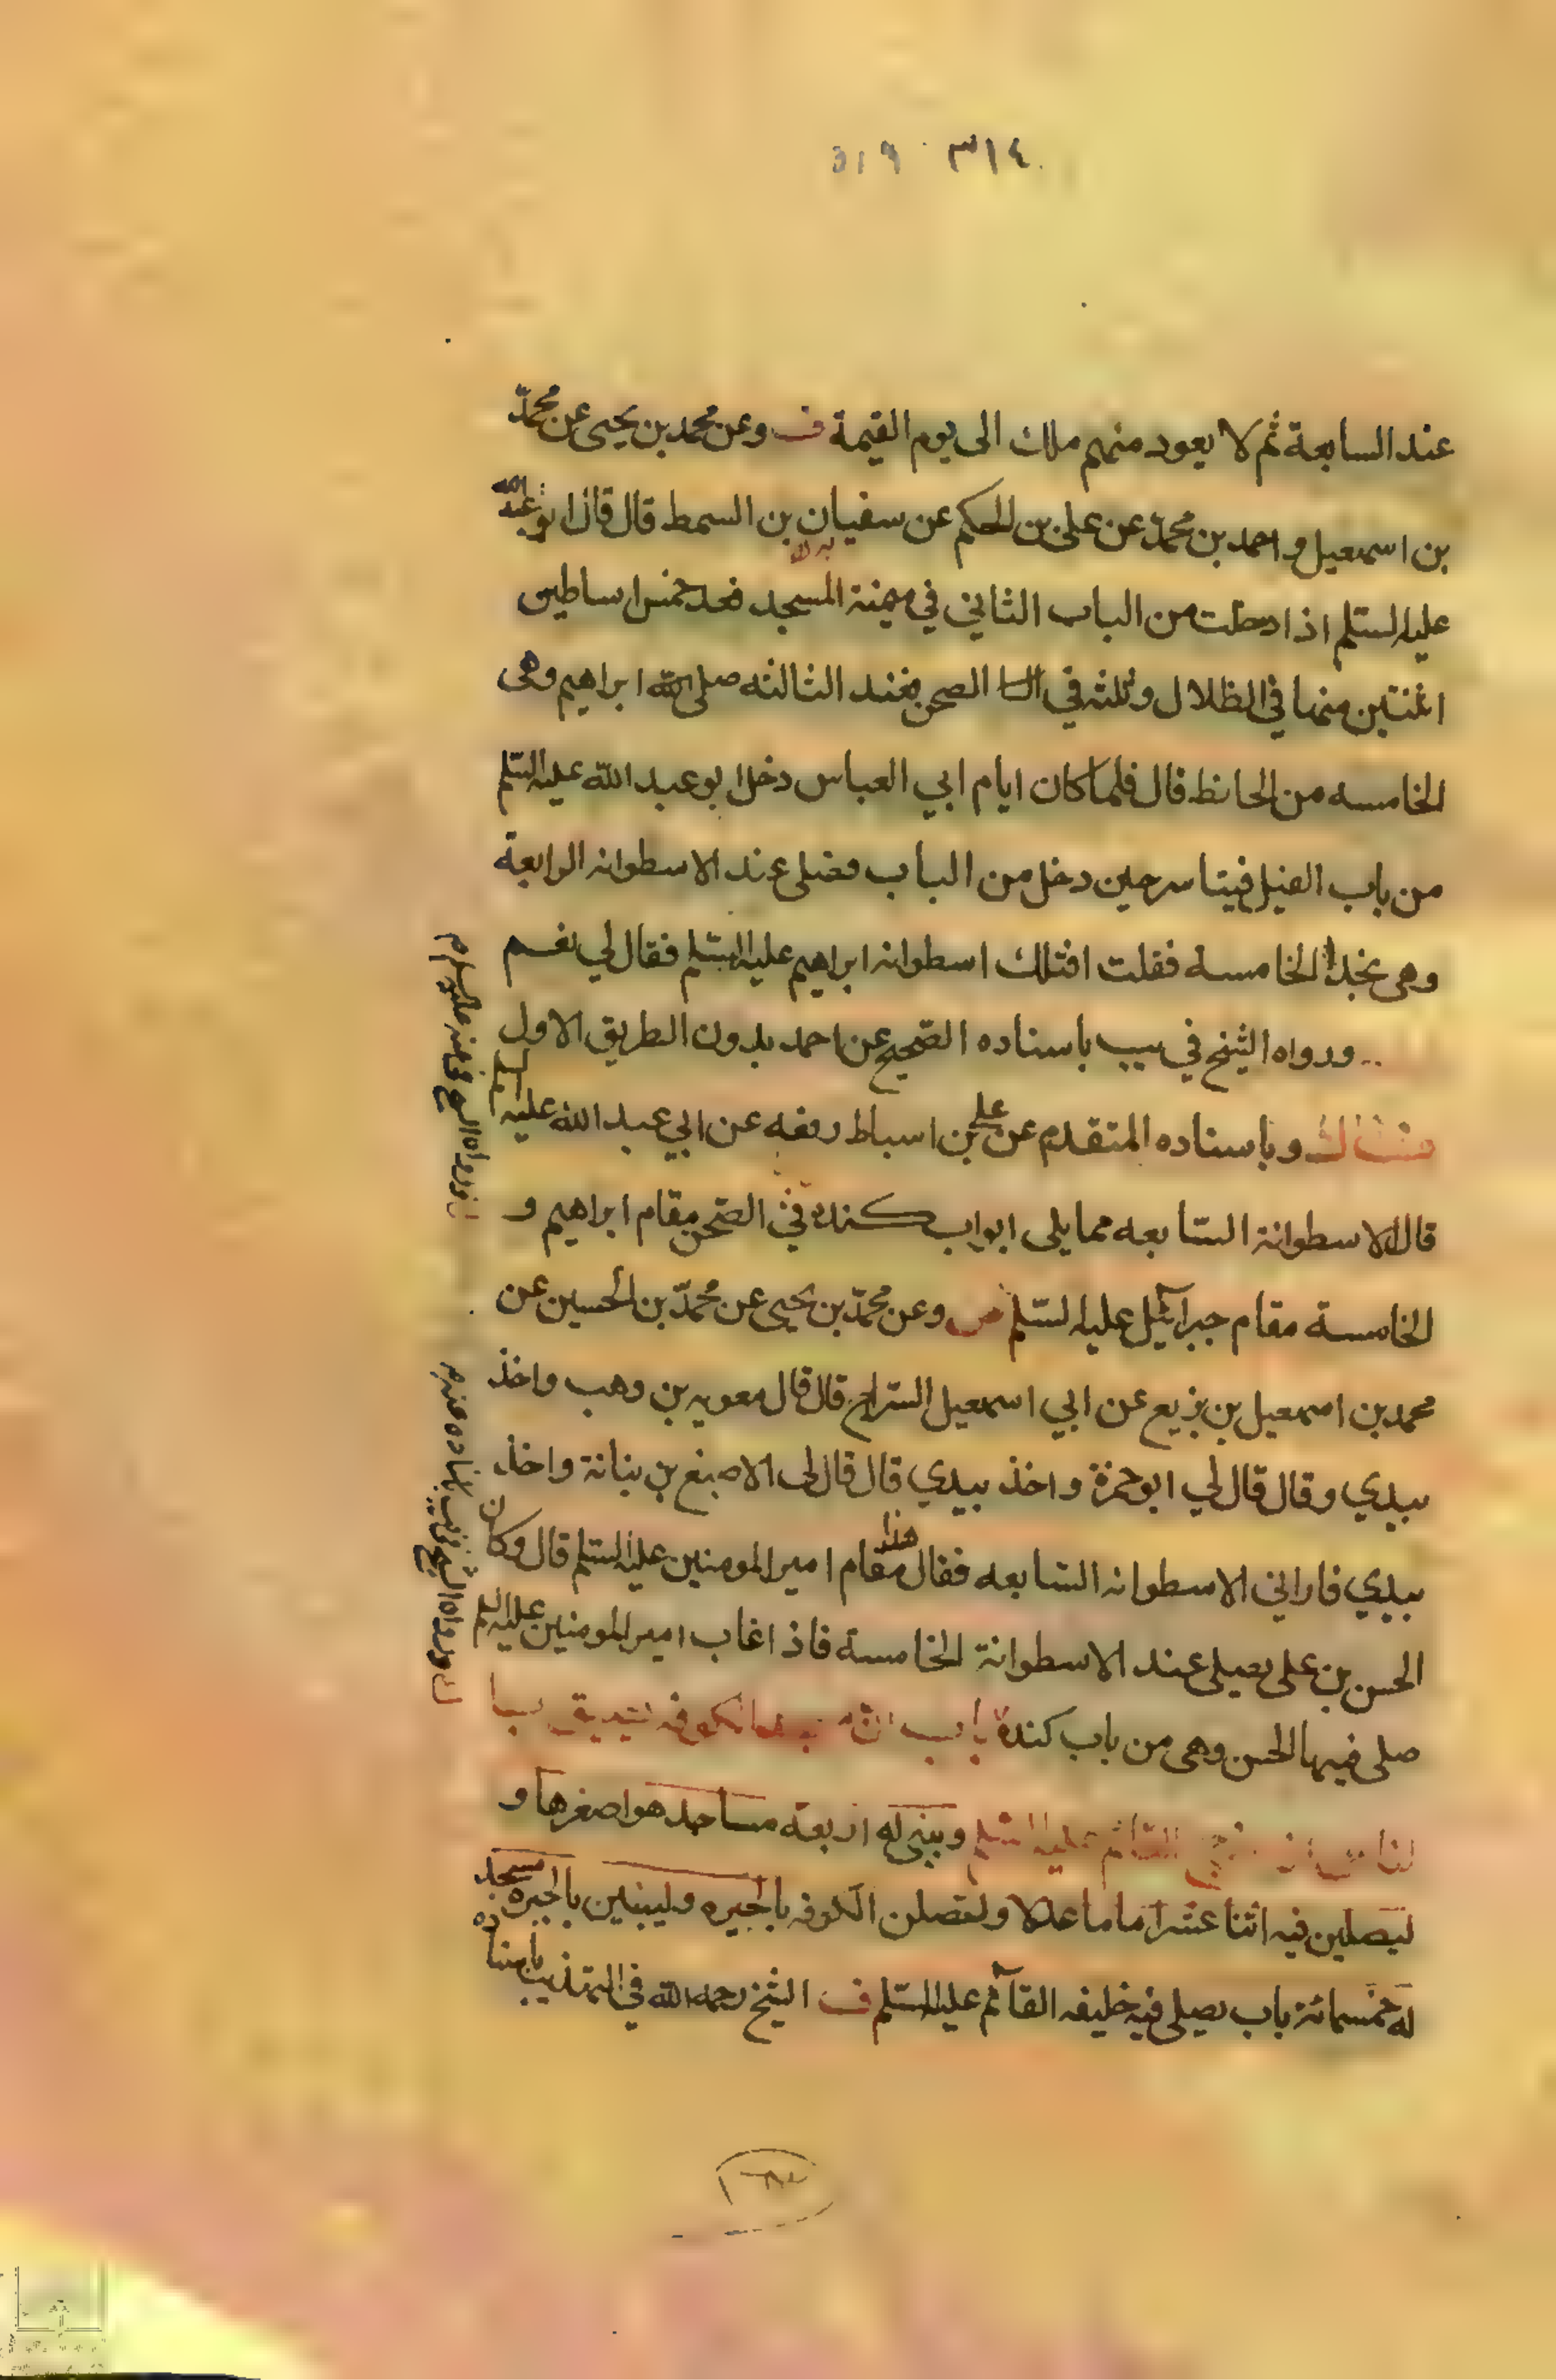 ٣١٤ ٣١٩
عند السابعة ثم لا يعود منهم ملك الى يوم القيمة ف وعن محمد بن يحيى عن محمد
بن اسمعيل و احمد بن محمد عن على بن الحكم عن سفيان بن السمط قال قال ابو عبد الله
عليه السلم اذا دخلت من الباب الثاني في ميمنة المسجد فعد خمس اساطين
اثنتين منها في الظلال وثلثه في الصحن فعند الثالثه صلى الله ابراهيم وهى
الخامسه من الحائط قال فلما كان ايام ابي العباس دخل ابو عبد الله عليه السلم
من باب الفيل فيتاسر حين دخل من الباب فصلى عند الاسطوانه الرابعة
وهى بحذا الخامسه فقلت افتلك اسطوانه ابراهيم عليه السلم فقال لي نعم
ورواه الشيخ في يب باسناده الصحيح عن احمد بدون الطريق الاول
وباسناده المتقدم عن على بن اسباط رفعه عن ابي عبد الله عليه السلم
قال الاسطوانة السابعه مما يلى ابواب كنده في الصحن مقام ابراهيم و
الخامسة مقام جبرائيل عليه السلم ص وعن محمد بن يحيى عن محمد بن الحسين عن
محمد بن اسمعيل بن بزيع عن ابي اسمعيل السراج قال قال معويه بن وهب واخذ
بيدي وقال قال لي ابو حمزة واخذ بيدي قال قال لى الاصبغ بن نباتة واخذ
بيدي فاراني الاسطوانه السابعه فقال هذا مقام امير المومنين عليه السلم قال وكان
الحسن بن على يصلى عند الاسطوانة الخامسة فاذا غاب امير المومنين عليه السلم
صلى فيها الحسن وهى من باب كندة باب
القائم عليه السلم ويبنى له اربعة مساجد هو اصغرها و
ليصلين فيه اثنا عشر اماما عدلا ولتصلن الكوفه بالحيره وليبنين بالحيرة مسجد
له خمسمائة باب يصلى فيه خليفه القآئم عليه السلم ف الشيخ رحمه الله في التهذيب باسناده